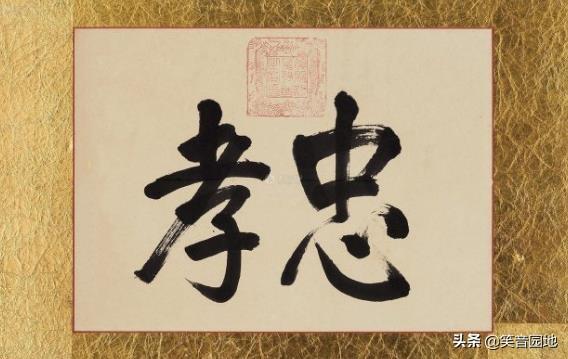 忠孝
头条 @笑音园地